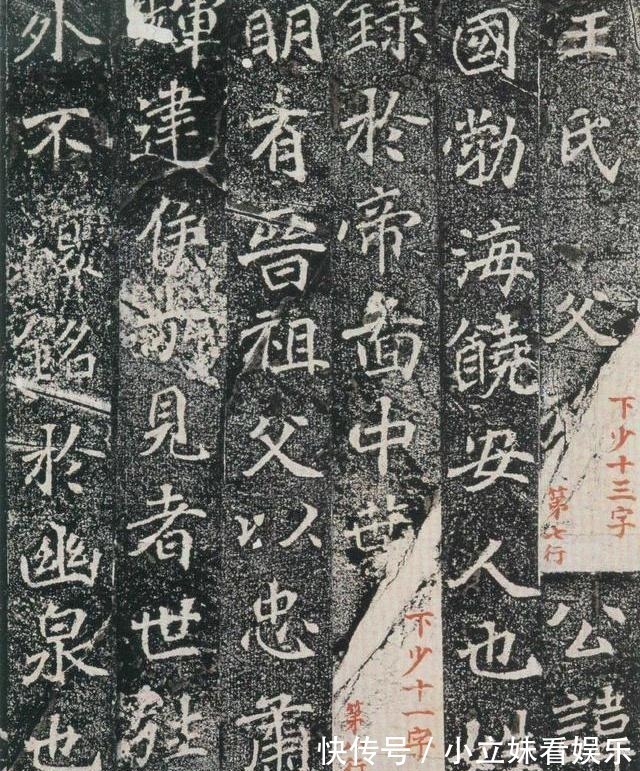 王氏父
下少十三字
第七行
公諱
國勃海饒安人也
錄於帝啚中葉
下少十一字
第
明有晉祖父以忠肅
輝建侯見者世
外不銘於幽泉也
快传号/小立妹看娱乐